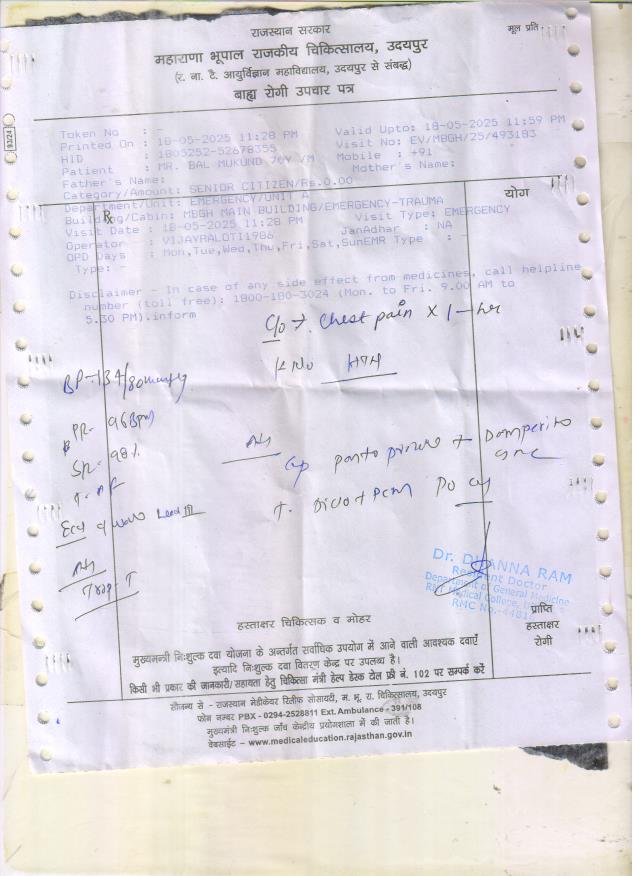 राजस्थान सरकार
मूल प्रति
महाराणा भूपाल राजकीय चिकित्सालय, उदयपुर
(र. ना. टै. आयुर्विज्ञान महाविद्यालय, उदयपुर से संबद्ध)
बाह्य रोगी उपचार पत्र
93/24
Token No : -
Printed On : 18-05-2025 11:28 PM Valid Upto: 18-05-2025 11:59 PM
HID : 1805252-52678355 Visit No: EV/MBGH/25/493183
Patient : MR. BAL MUKUND 70Y /M Mobile : +91
Father's Name: Mother's Name:
Category/Amount: SENIOR CITIZEN/Rs.0.00
Department/Unit: EMERGENCY/UNIT A
Building/Cabin: MBGH MAIN BUILDING/EMERGENCY-TRAUMA
Visit Date : 18-05-2025 11:28 PM Visit Type: EMERGENCY
Operator : VIJAYRALOTI1986 JanAdhar : NA
OPD Days : Mon,Tue,Wed,Thu,Fri,Sat,Sun EMR Type : -
Type: -
Rx
योग
Disclaimer - In case of any side effect from medicines, call helpline
number (toll free): 1800-180-3024 (Mon. to Fri. 9.00 AM to
5.30 PM).inform
C/o → Chest pain X 1-hr
K/c/o HTN
BP-134/80mmHg
PR- 96 Bpm
98%
Adv
Cap
T. Diclo + PCM
Lead III
Adv
Trop-T
Dr. DHANNA RAM
Resident Doctor
Department of General Medicine
RNT Medical College,
RMC No.-
हस्ताक्षर चिकित्सक व मोहर
प्राप्ति
हस्ताक्षर
रोगी
मुख्यमन्त्री निःशुल्क दवा योजना के अन्तर्गत सर्वाधिक उपयोग में आने वाली आवश्यक दवाएँ
इत्यादि निःशुल्क दवा वितरण केन्द्र पर उपलब्ध है।
किसी भी प्रकार की जानकारी/सहायता हेतु चिकित्सा मंत्री हेल्प डेस्क टोल फ्री नं. 102 पर सम्पर्क करें
सौजन्य से - राजस्थान मेडीकेयर रिलीफ सोसायटी, म. भू. रा. चिकित्सालय, उदयपुर
फोन नम्बर PBX - 0294-2528811 Ext. Ambulance - 391/108
मुख्यमंत्री निःशुल्क जाँच केन्द्रीय प्रयोगशाला में की जाती है।
वेबसाईट - www.medicaleducation.rajasthan.gov.in